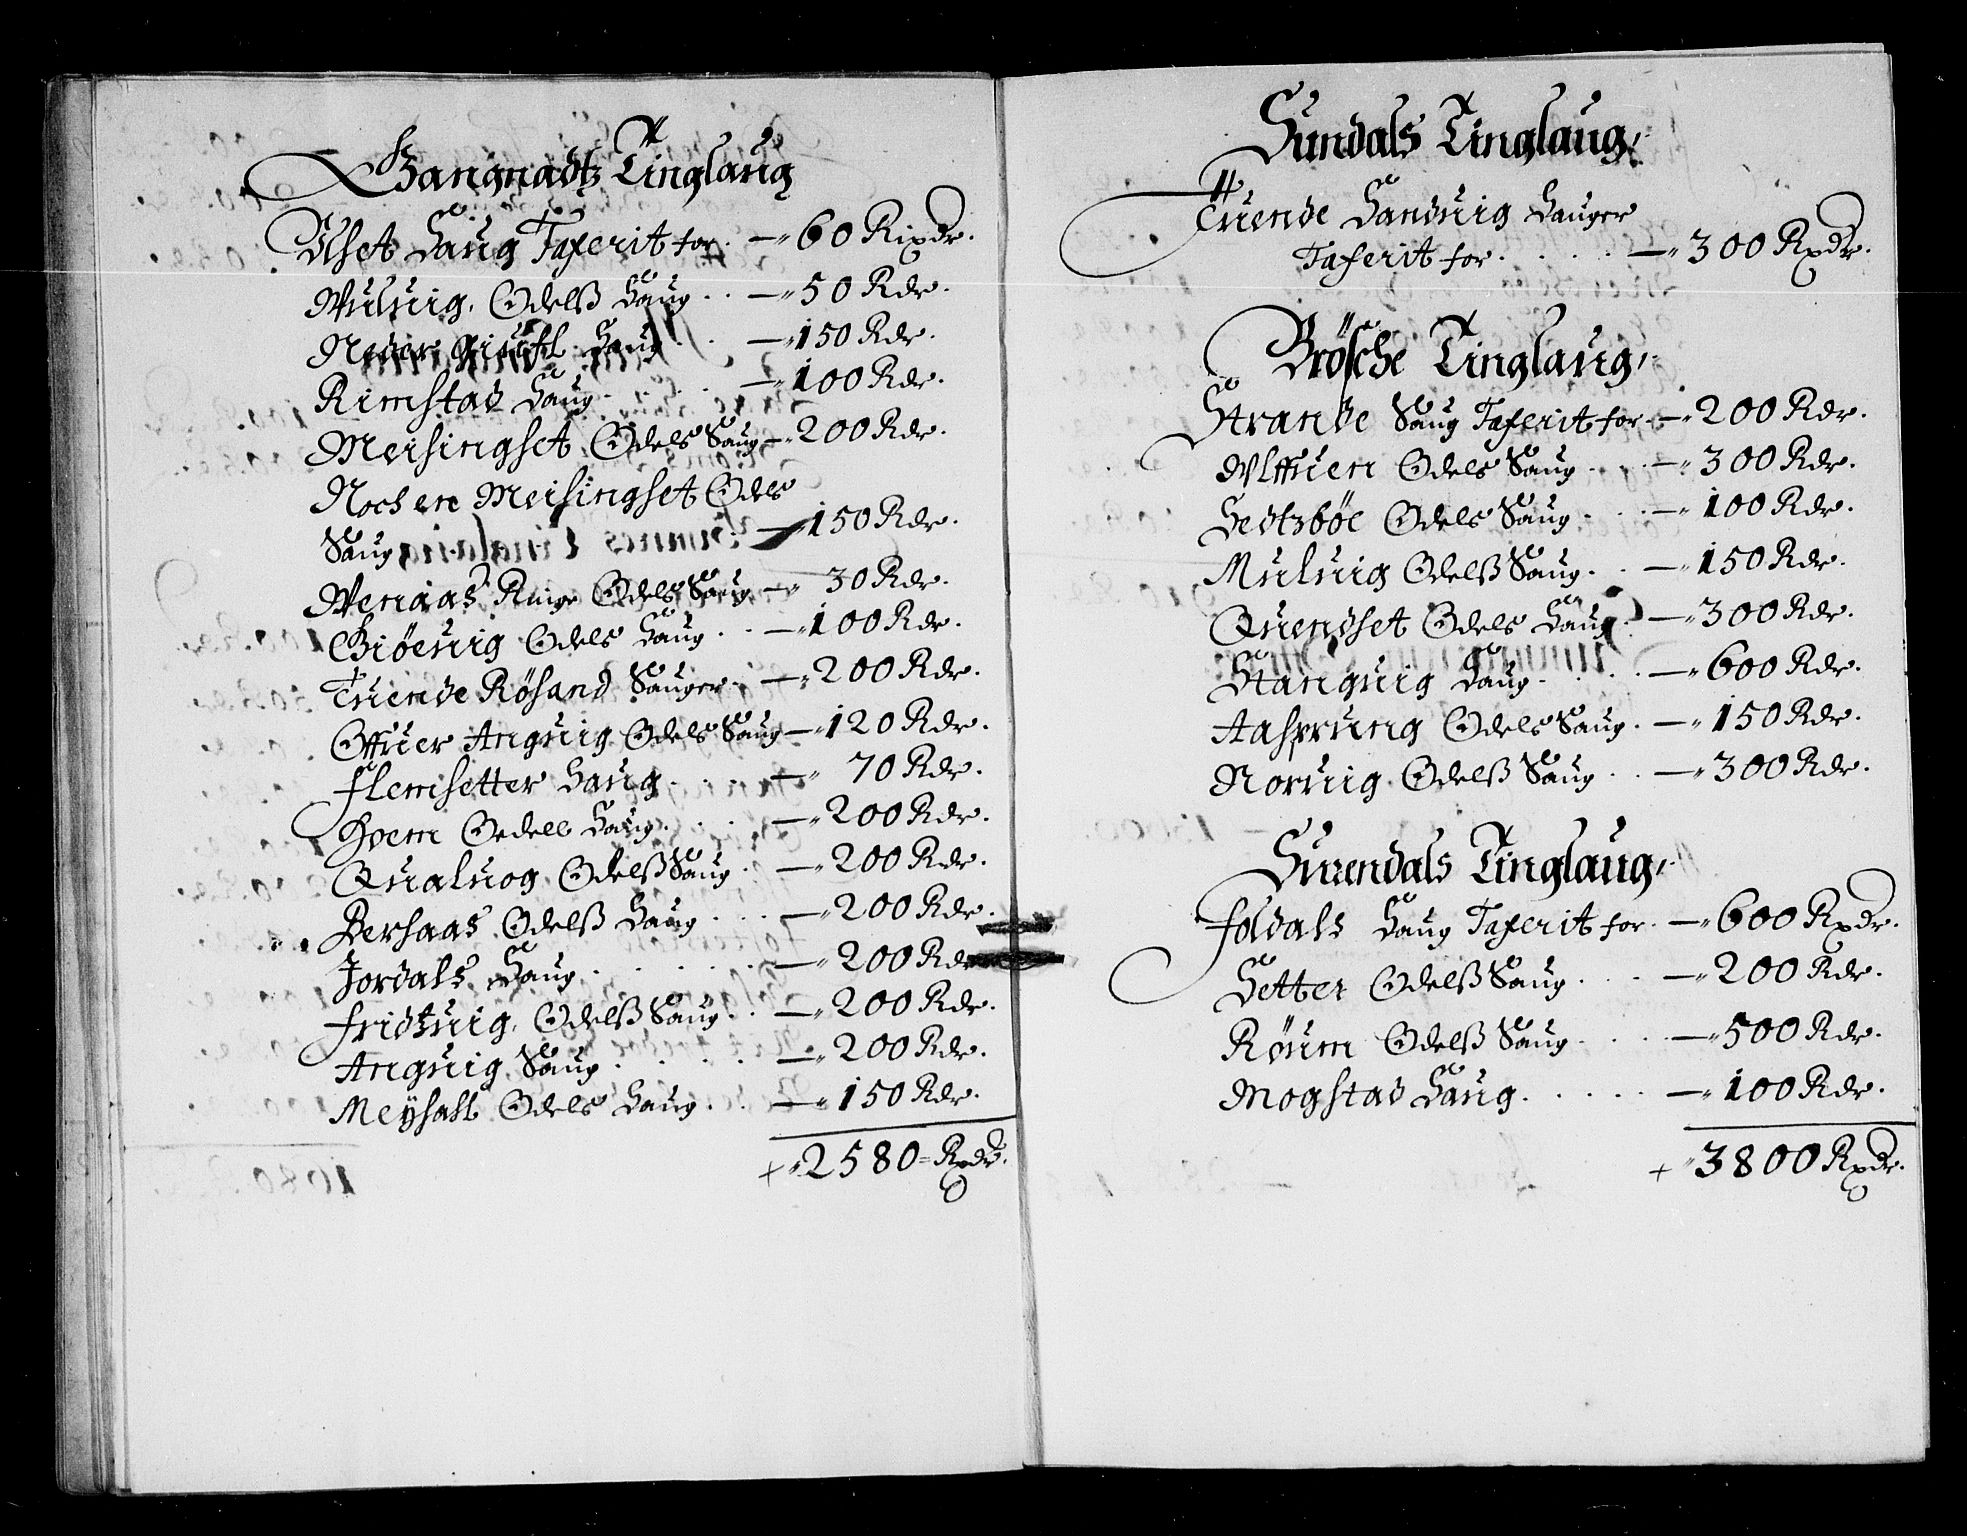 Gangnadtz Tinglaug
Ulset Saug Taxerit for. — 60 Rixdr.
Wuluig. Odelß Saug . . — 50 Rdr.
Neder Saug . . — 150 Rdr.
Rimstad Saug . . . . — 100 Rdr.
Meisingset Odels Saug — 200 Rdr.
Noch en Meisingset Odels
Saug . . . — 150 Rdr.
Wenaas Ringe Odels Saug — 30 Rdr.
Giöeuig Odels Saug . . — 100 Rdr.
Tuende Rösand Sauger. — 200 Rdr.
Offuer Anguig Odels Saug — 120 Rdr.
Flemsetter Saug . . . . — 70 Rdr.
Hoem Oedels Saug . . . — 200 Rdr.
Qualuog Odelß Saug . — 200 Rdr.
Berhaas Odelß Saug . . . — 200 Rdr.
Jordals Saug . . . . . — 200 Rdr
Fridtzuig. Odelß Saug . . — 200 Rdr.
Anguig Saug . . . . — 200 Rdr.
Meyhall Odels Saug . . — 150 Rdr.
+ 2580 = Rxdr.
Sundals Tinglaug,
Tuende Sanduig Sauger
Taxerit for. . . . . — 300 Rxdr.
Brösche Tinglaug,
Strande Saug Taxerit for. — 200 Rdr.
Ulffuen Odels Saug . . . — 300 Rdr.
Sedtzböe Odels Saug . . . — 100 Rdr.
Muluig Odelß Saug. . . — 150 Rdr.
Quendset Odels Saug. — 300 Rdr.
Stanguig Saug. . . . . — 600 Rdr.
Aasprung Odels Saug . — 150 Rdr.
Noruig Odelß Saug . . — 300 Rdr.
Surendals Tinglaug,
Foldals Saug Taxerit for. — 600 Rxdr.
Setter Odelß Saug . . . — 200 Rdr.
Röum Odelß Saug. . . . — 500 Rdr.
Mogstad Saug. . . . . . — 100 Rdr.
+ 3800 Rxdr.